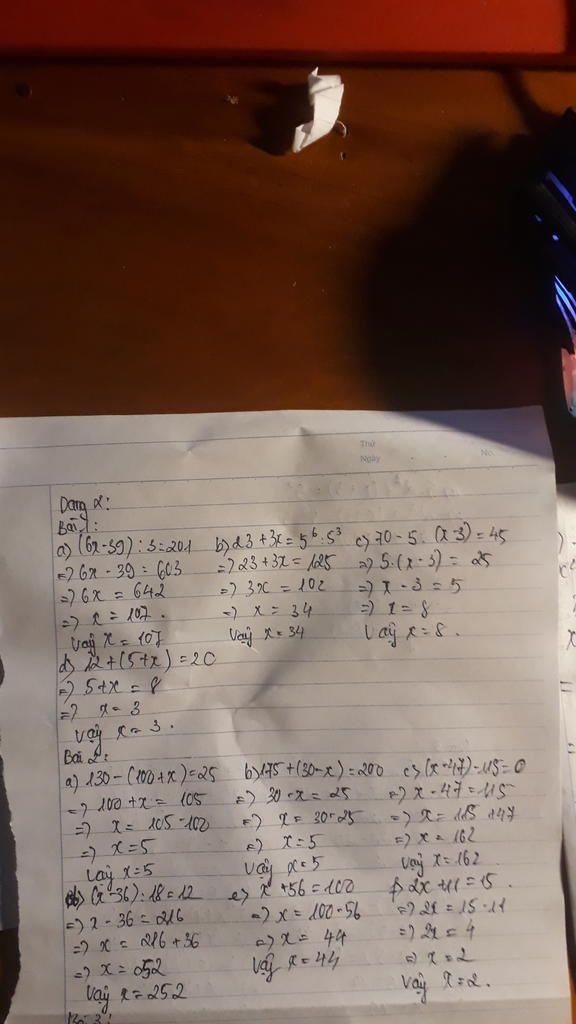 Thứ
Ngày No.
Dạng 2:
Bài 1:
a) (6x-39) : 3 = 201 b) 23 + 3x = 5⁶ : 5³ c) 70 - 5 . (x-3) = 45
=> 6x - 39 = 603 => 23 + 3x = 125 => 5.(x-3) = 25
=> 6x = 642 => 3x = 102 => x - 3 = 5
=> x = 107. => x = 34 => x = 8
Vậy x = 107 Vậy x = 34 Vậy x = 8.
d) 12 + (5+x) = 20
=> 5+x = 8
=> x = 3
Vậy x = 3.
Bài 2:
a) 130 - (100+x) = 25 b) 175 + (30-x) = 200 c) (x-47) - 115 = 0
=> 100 + x = 105 => 30 - x = 25 => x - 47 = 115
=> x = 105 - 100 => x = 30-25 => x = 115 + 47
=> x = 5 => x = 5 => x = 162
Vậy x = 5 Vậy x = 5 Vậy x = 162
d) (x-36) : 18 = 12 e) x + 56 = 100 f) 2x + 11 = 15.
=> x - 36 = 216 => x = 100 - 56 => 2x = 15 - 11
=> x = 216 + 36 => x = 44 => 2x = 4
=> x = 252 Vậy x = 44 => x = 2
Vậy x = 252 Vậy x = 2.
Bài 3: